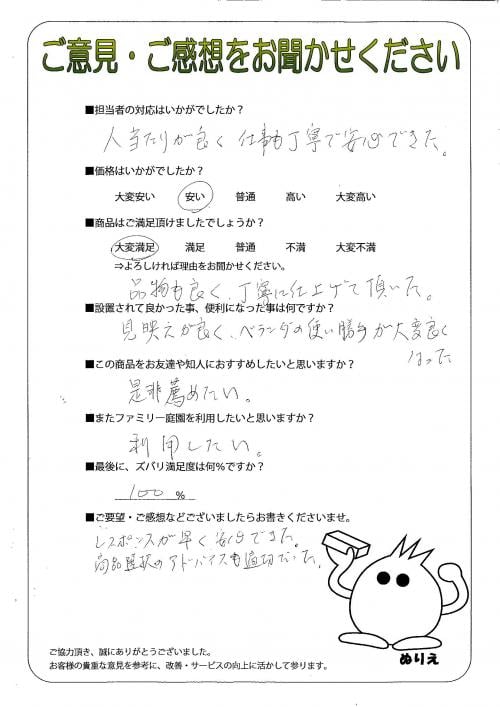 ご意見・ご感想をお聞かせください
■担当者の対応はいかがでしたか？
人当たりが良く 仕事も丁寧で安心できた。
■価格はいかがでしたか？
大変安い 安い 普通 高い 大変高い
■商品はご満足頂けましたでしょうか？
大変満足 満足 普通 不満 大変不満
⇒よろしければ理由をお聞かせください。
品物も良く、丁寧に仕上げて頂いた。
■設置されて良かった事、便利になった事は何ですか？
見映えが良く、ベランダの使い勝手が大変良く
なった
■この商品をお友達や知人におすすめしたいと思いますか？
是非薦めたい。
■またファミリー庭園を利用したいと思いますか？
利用したい。
■最後に、ズバリ満足度は何％ですか？
100 %
■ご要望・ご感想などございましたらお書きくださいませ。
レスポンスが早く安心できた。
商品選択のアドバイスも適切だった。
ご協力頂き、誠にありがとうございました。
お客様の貴重な意見を参考に、改善・サービスの向上に活かして参ります。
ぬりえ